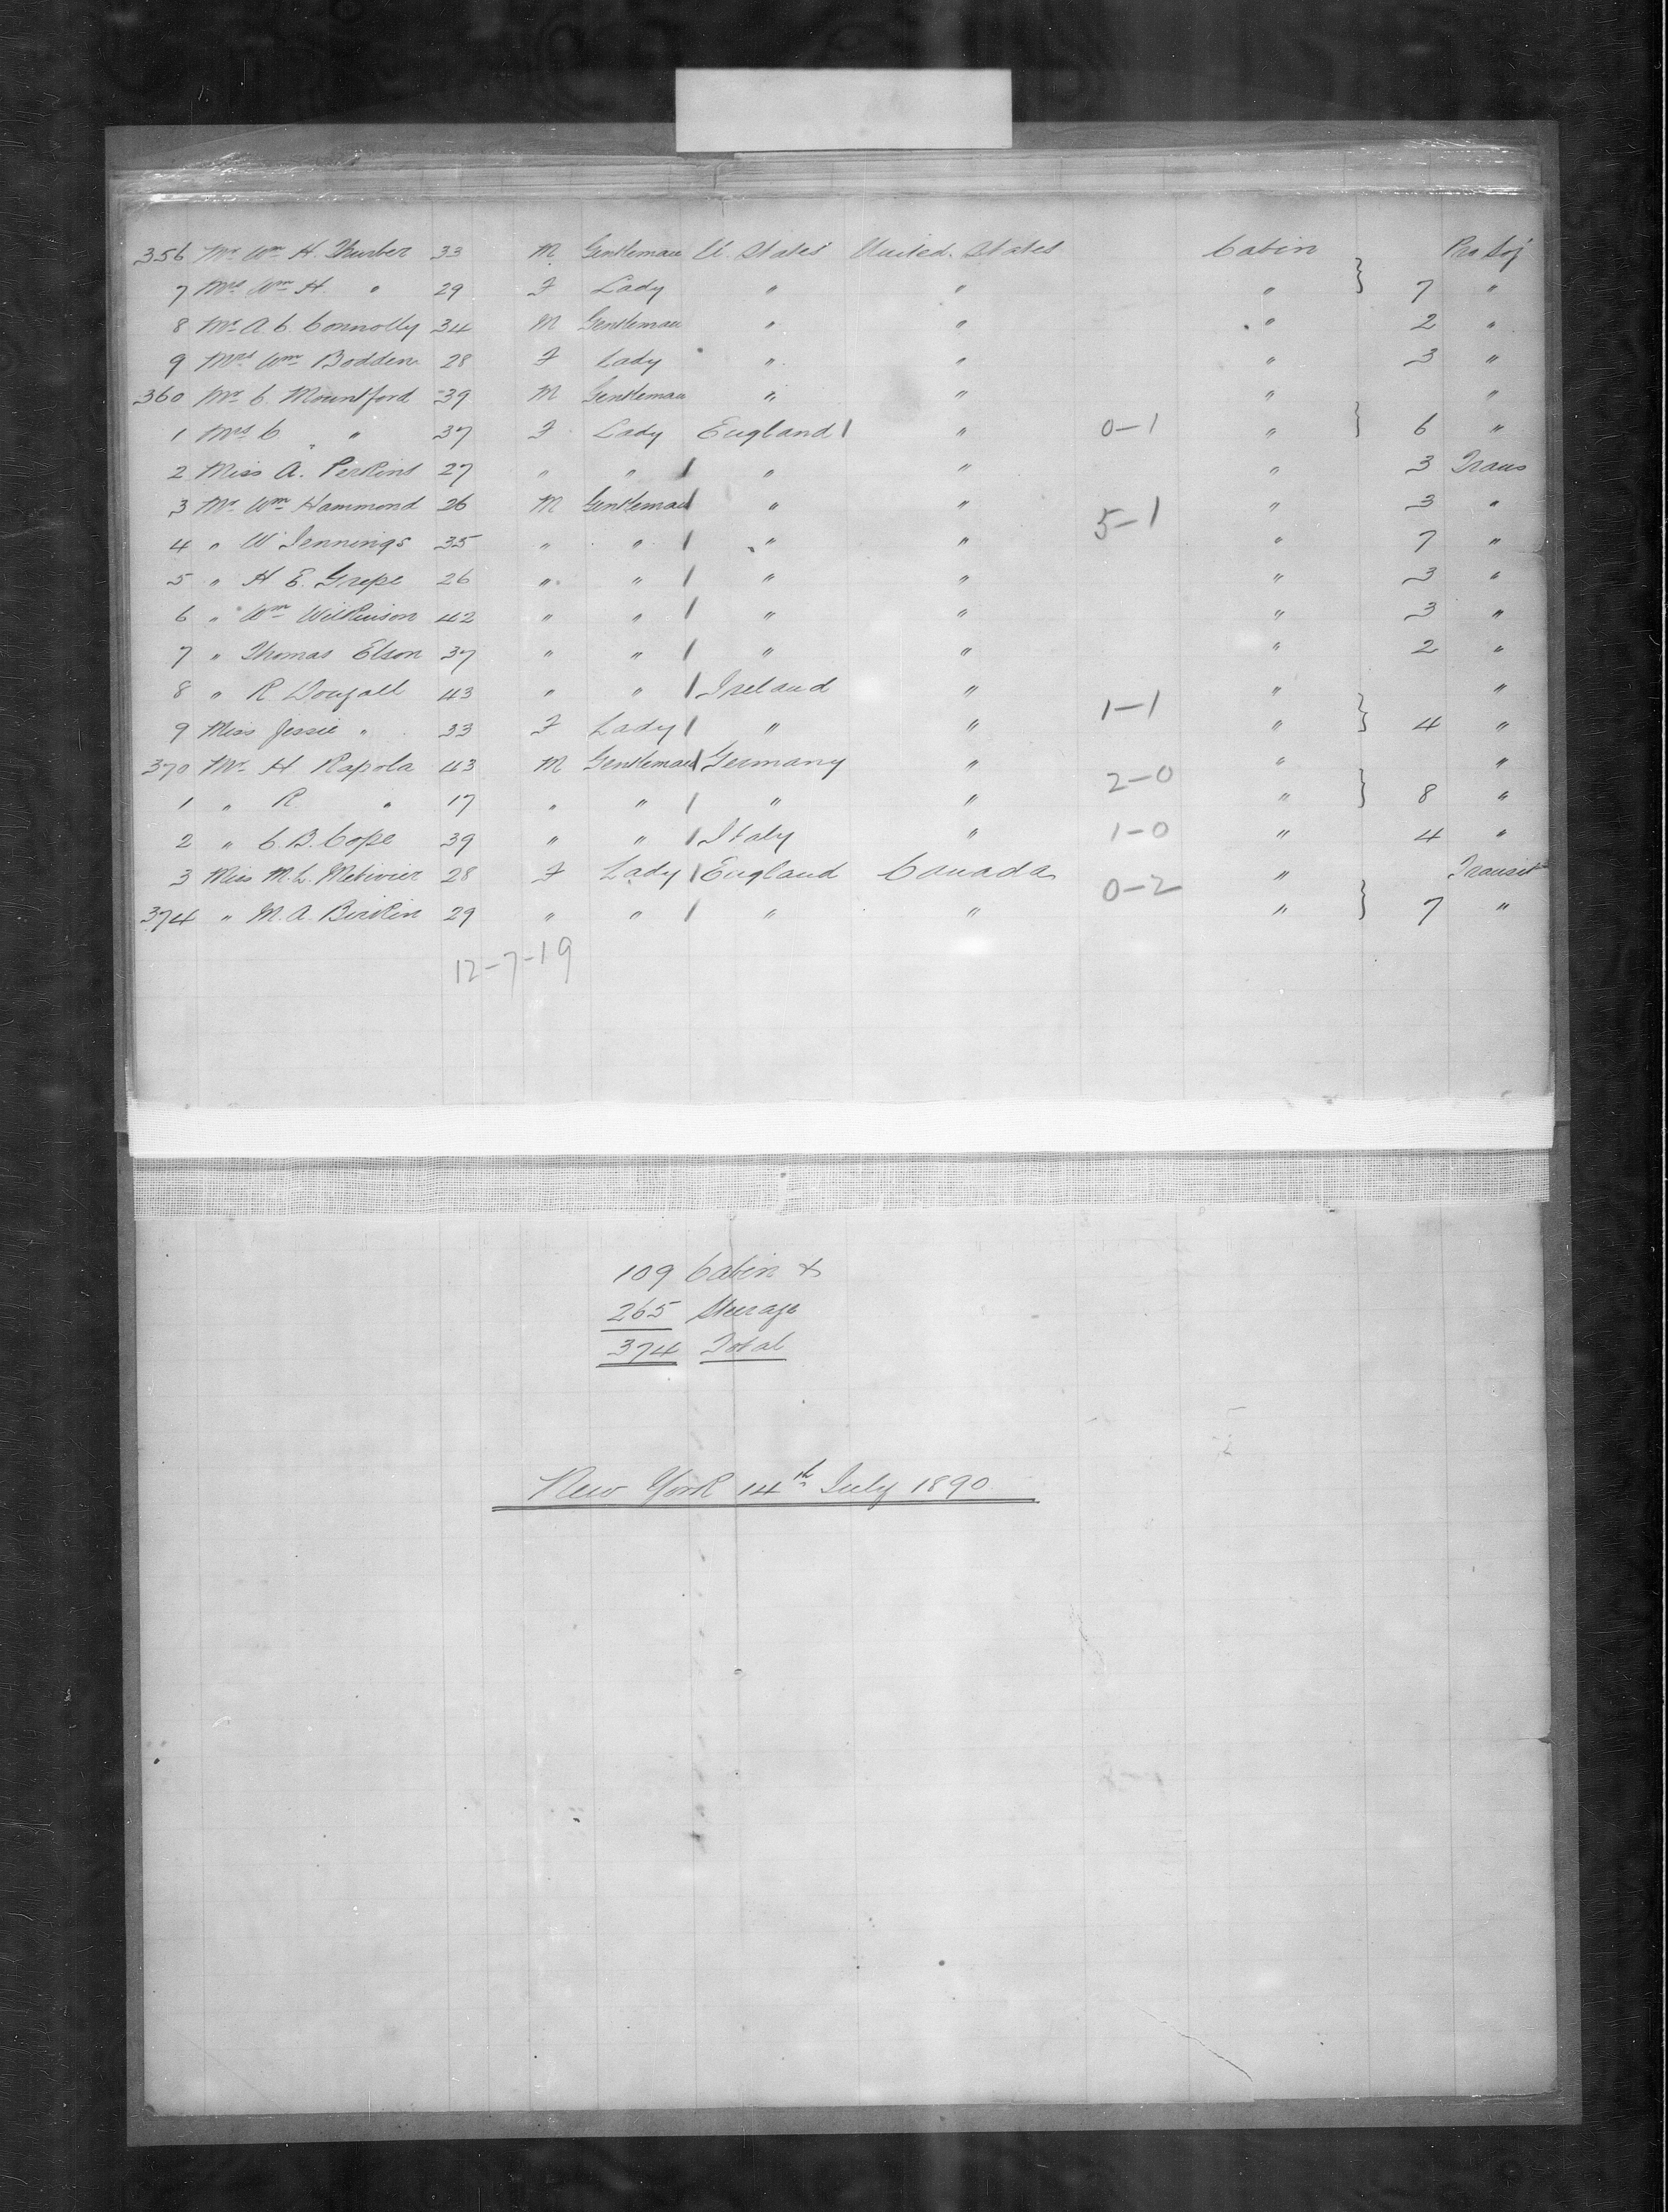 356 Mr Wm H. Thurber 33 M Gentleman U. States United States Cabin Pro Soj
7 Mrs Wm H. " 29 F Lady " " " } 7 "
8 Mr A C. Connolly 34 M Gentleman " " " 2 "
9 Mrs Wm Bodden 28 F Lady " " " 3 "
360 Mr C. Mountford 39 M Gentleman " " " "
1 Mrs C " 37 F Lady England " 0-1 " } 6 "
2 Miss A. Perkins 27 " " " " " 3 Trans
3 Mr Wm Hammond 26 M Gentleman " " 5-1 " 3 "
4 " W Jennings 35 " " " " " 7 "
5 " H E. Grepe 26 " " " " " 3 "
6 " Wm Wilkinson 42 " " " " " 3 "
7 " Thomas Elson 37 " " " " " 2 "
8 " R Dougall 43 " " Ireland " " "
9 Miss Jessie " 33 F Lady " " 1-1 " } 4 "
370 Mr H Rapola 43 M Gentleman Germany " " "
1 " R " 17 " " " " 2-0 " } 8 "
2 " C. B. Cope 39 " " Italy " 1-0 " 4 "
3 Miss M. L. Metivier 28 F Lady England Canada " Transit
374 " M. A. Birkin 29 " " " " 0-2 " } 7 "
12-7-19
109 Cabin &
265 Steerage
374 Total
New York 14th July 1890